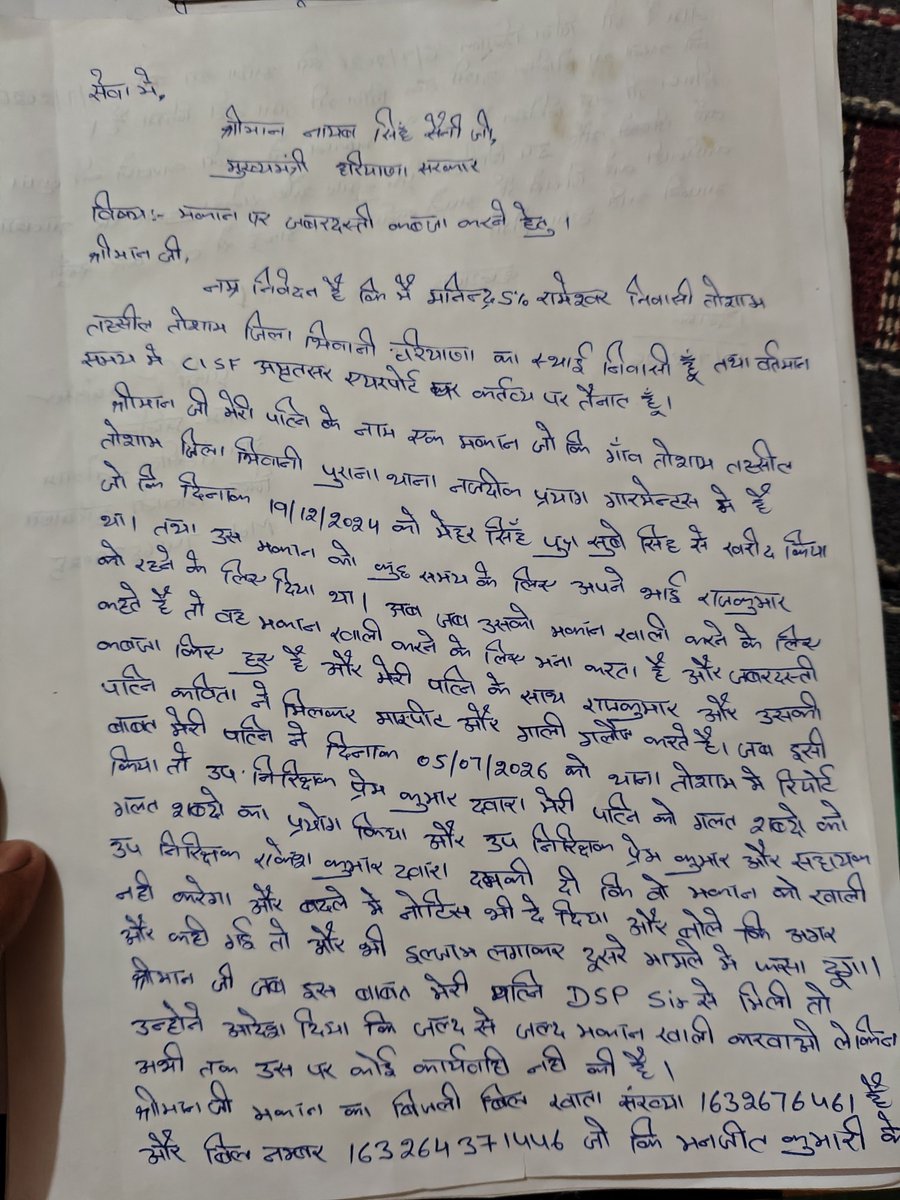 सेवा मे,
श्रीमान नायब सिंह सैनी जी,
मुख्यमंत्री हरियाणा सरकार
विषय:- मकान पर जबरदस्ती कबजा करने हेतु।
श्रीमान जी,
नम्र निवेदन है कि मै मनिन्द्र S/o रामेश्वर निवासी तोशाम
तहसील तोशाम जिला भिवानी हरियाणा का स्थाई निवासी हूँ तथा वर्तमान
समय मे CISF अमृतसर एयरपोर्ट पर कर्तव्य पर तैनात हूँ।
श्रीमान जी मेरी पत्नि के नाम एक मकान जो कि गाँव तोशाम तहसील
तोशाम जिला भिवानी पुराना थाना नजदीक प्रयाग गारमेन्टस मे है
जो कि दिनाक 19/12/2024 को मेहर सिंह पुत्र सुबे सिंह से खरीद किया
था। तथा उस मकान को कुछ समय के लिए अपने भाई राजकुमार
को रहने के लिए दिया था। अब जब उसको मकान खाली करने के लिए
कहते है तो वह मकान खाली करने के लिए मना करता है और जबरदस्ती
कबजा किए हुए है और मेरी पत्नि के साथ राजकुमार और उसकी
पत्नि कविता ने मिलकर मारपीट और गाली गलौज करते है। जब इसी
बाबत मेरी पत्नि ने दिनाक 05/07/2026 को थाना तोशाम मे रिपोर्ट
किया तो उप निरिक्षक प्रेम कुमार दवारा मेरी पत्नि को गलत शब्दो को
गलत शब्दो का प्रयोग किया और उप निरिक्षक प्रेम कुमार और सहायक
उप निरिक्षक राकेश कुमार दवारा दमकी दी कि वो मकान को खाली
नही करेगा और बदले मे नोटिस भी दे दिया और बोले कि अगर
और कही गई तो और भी इलजाम लगाकर दूसरे मामले मे फसा दूगा।
श्रीमान जी जब इस बाबत मेरी पत्नि DSP Sir से मिली तो
उन्होने आदेश दिया कि जल्द से जल्द मकान खाली करवाओ लेकिन
अभी तक उस पर कोई कार्यवाही नही की है।
श्रीमान जी मकान का बिजली बिल खाता संख्या 1632676461 है
और बिल नम्बर 163264371446 जो कि मनजीत कुमारी के